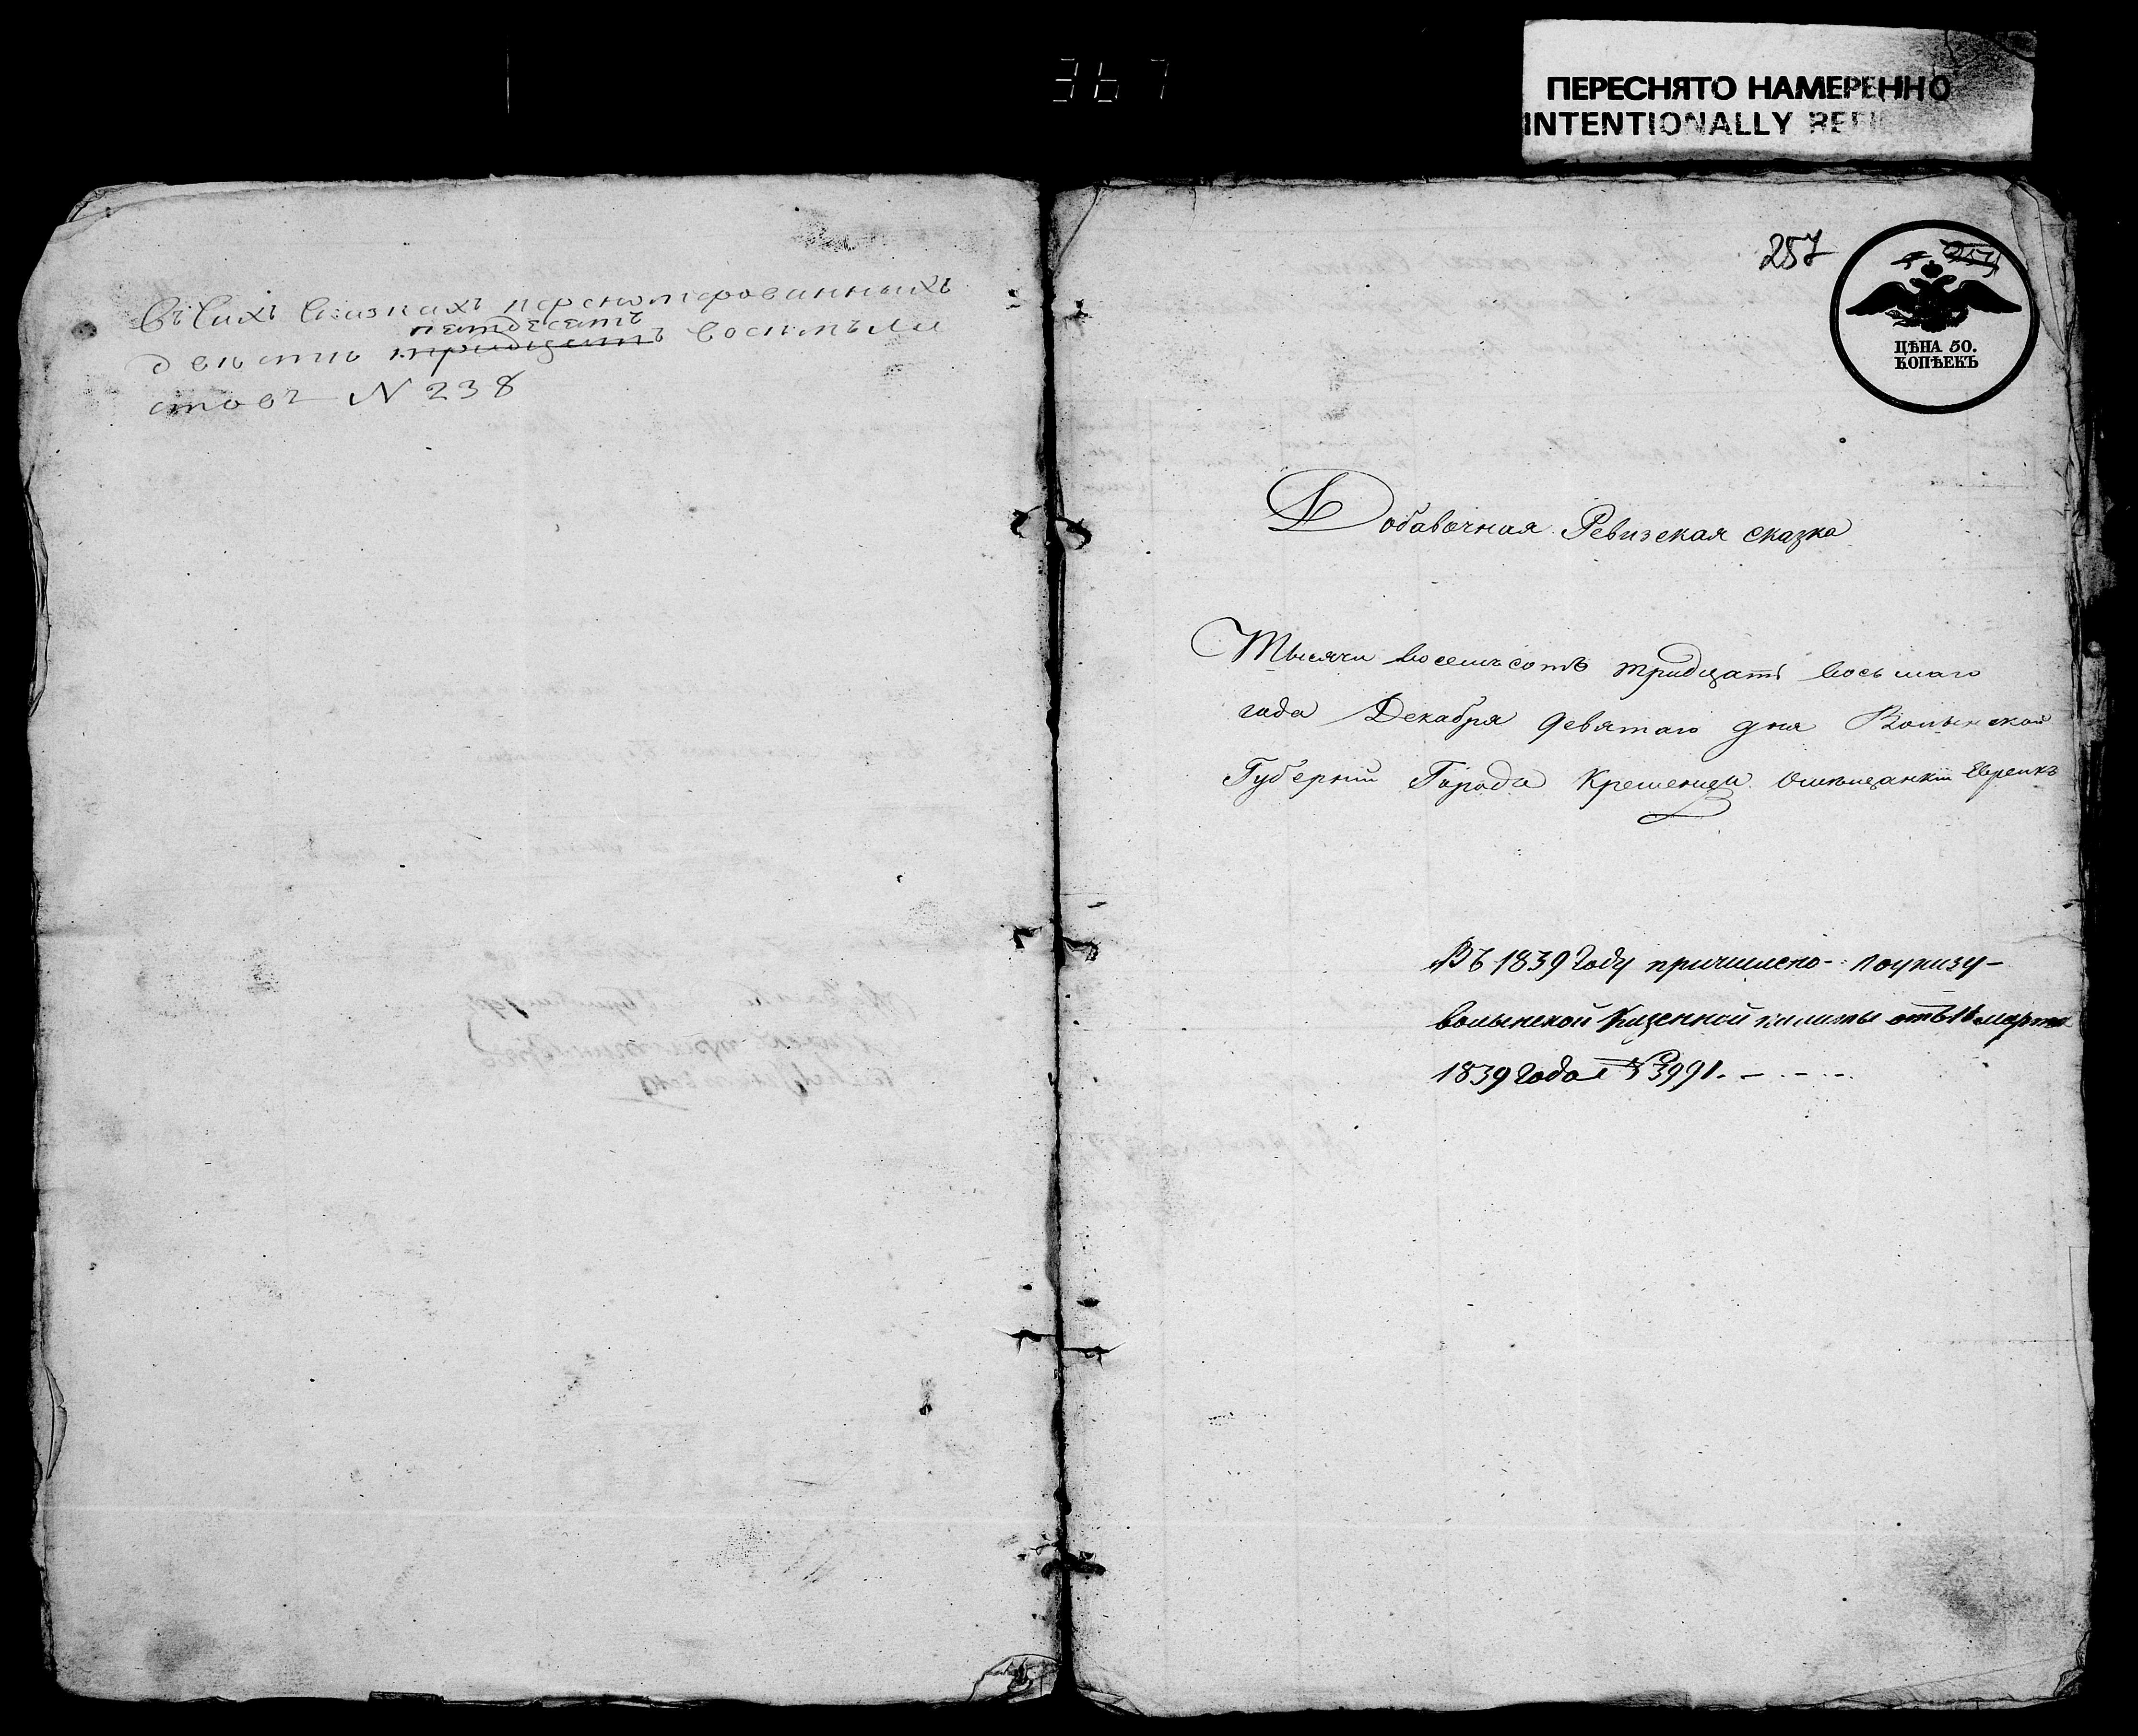 367
ПЕРЕСНЯТО НАМЕРЕННО
INTENTIONALLY
Въ сихъ сказкахъ переномерованныхъ
пятдесятъ
двѣсти тридцать восимъ ли
стовъ N 238
257
ЦѢНА 50.
КОПѢЕКЪ
Добавочная Ревизская сказка
Тысячи восемьсотъ тридцать восьмаго
года Декабря девятаго дня Волынской
Губерніи Города Кременца Евреикъ
Въ 1839 году причислено по указу
волынской Казенной палаты отъ 16 марта
1839 года № 3991.